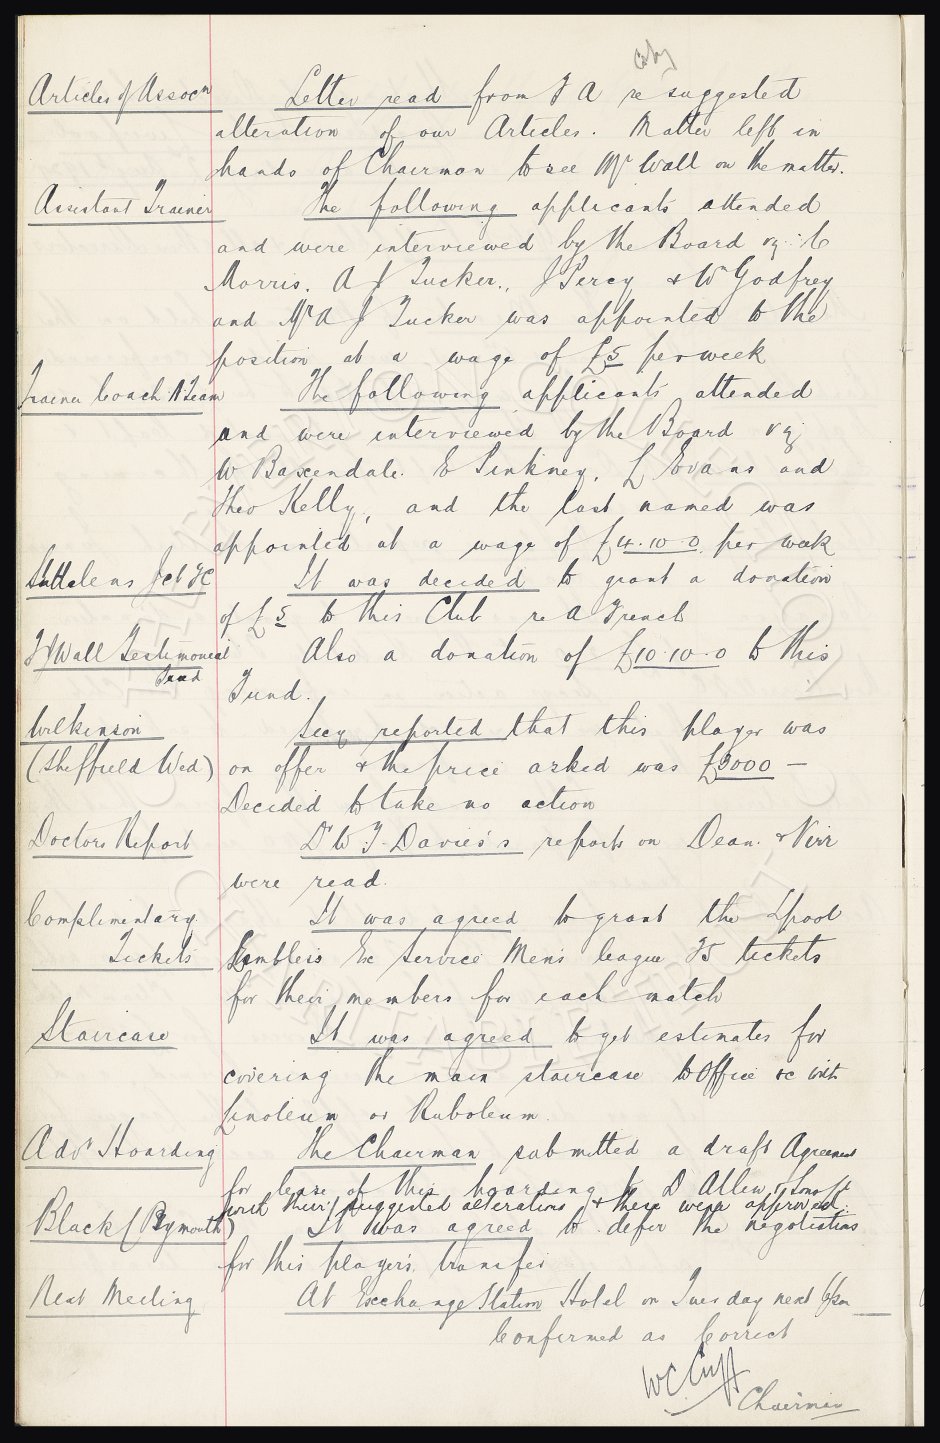 Copy
Articles of Assocn Letter read from F A re suggested
alteration of our Articles. Matter left in
hands of Chairman to see Mr Wall on the matter.
Assistant Trainer The following applicants attended
and were interviewed by the Board viz: C
Morris. A J Tucker., J Percy & W Godfrey
and Mr A J Tucker was appointed to the
position at a wage of £5 per week
Trainer Coach A Team The following applicants attended
and were interviewed by the Board viz
W Baxendale. E Pinkney, L Evans and
Theo Kelly, and the last named was
appointed at a wage of £4.10.0 per week
St Helens Jct FC It was decided to grant a donation
of £5 to this Club re A French
F J Wall Testimonial Also a donation of £10.10.0 to this
Fund
Fund.
Wilkinson Secy reported that this player was
(Sheffield Wed) on offer & the price asked was £3000 —
Decided to take no action
Doctors Report Dr W F. Davies's reports on Dean. & Virr
were read.
Complimentary It was agreed to grant the Lpool
Tickets Limbless Ex Service Men's league 75 tickets
for their members for each match
Staircase It was agreed to get estimates for
covering the main staircase to Office &c with
Linoleum or Ruboleum.
Advt Hoarding The Chairman submitted a draft Agreement
for lease of this hoarding to D Allen & Sons Lt
with their suggested alterations & these were approved.
Black (Plymouth) It was agreed to defer the negotiations
for this player's transfer
Next Meeting At Exchange Station Hotel on Tuesday next 6pm
Confirmed as Correct
W C Cuff
Chairman